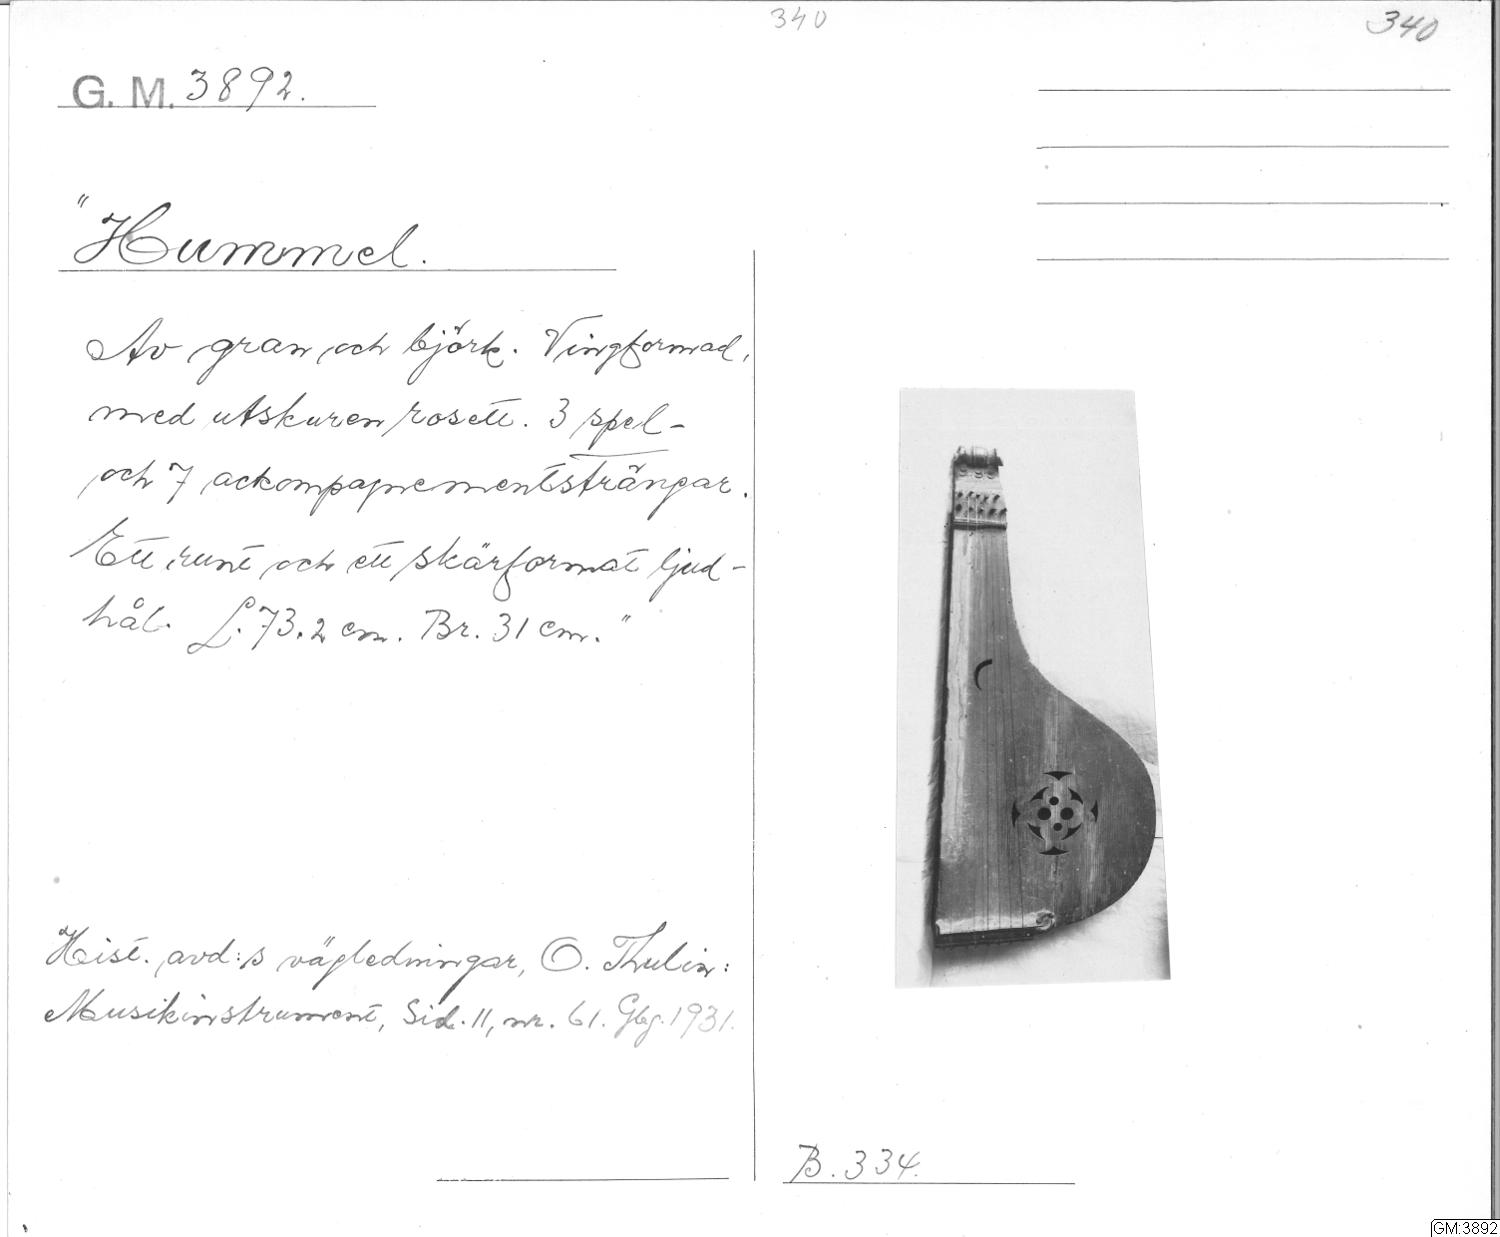 340
340
G. M. 3892.
"Hummel.
Av gran och björk. Vingformad,
med utskuren rosett. 3 spel-
och 7 ackompagnementsträngar.
Ett runt och ett skärformat ljud-
hål. L. 73.2 cm. Br. 31 cm."
Hist. avd:s vägledningar, O. Thulin:
Musikinstrument, Sid. 11, nr. 61. Gbg. 1931.
B. 334.
GM:3892